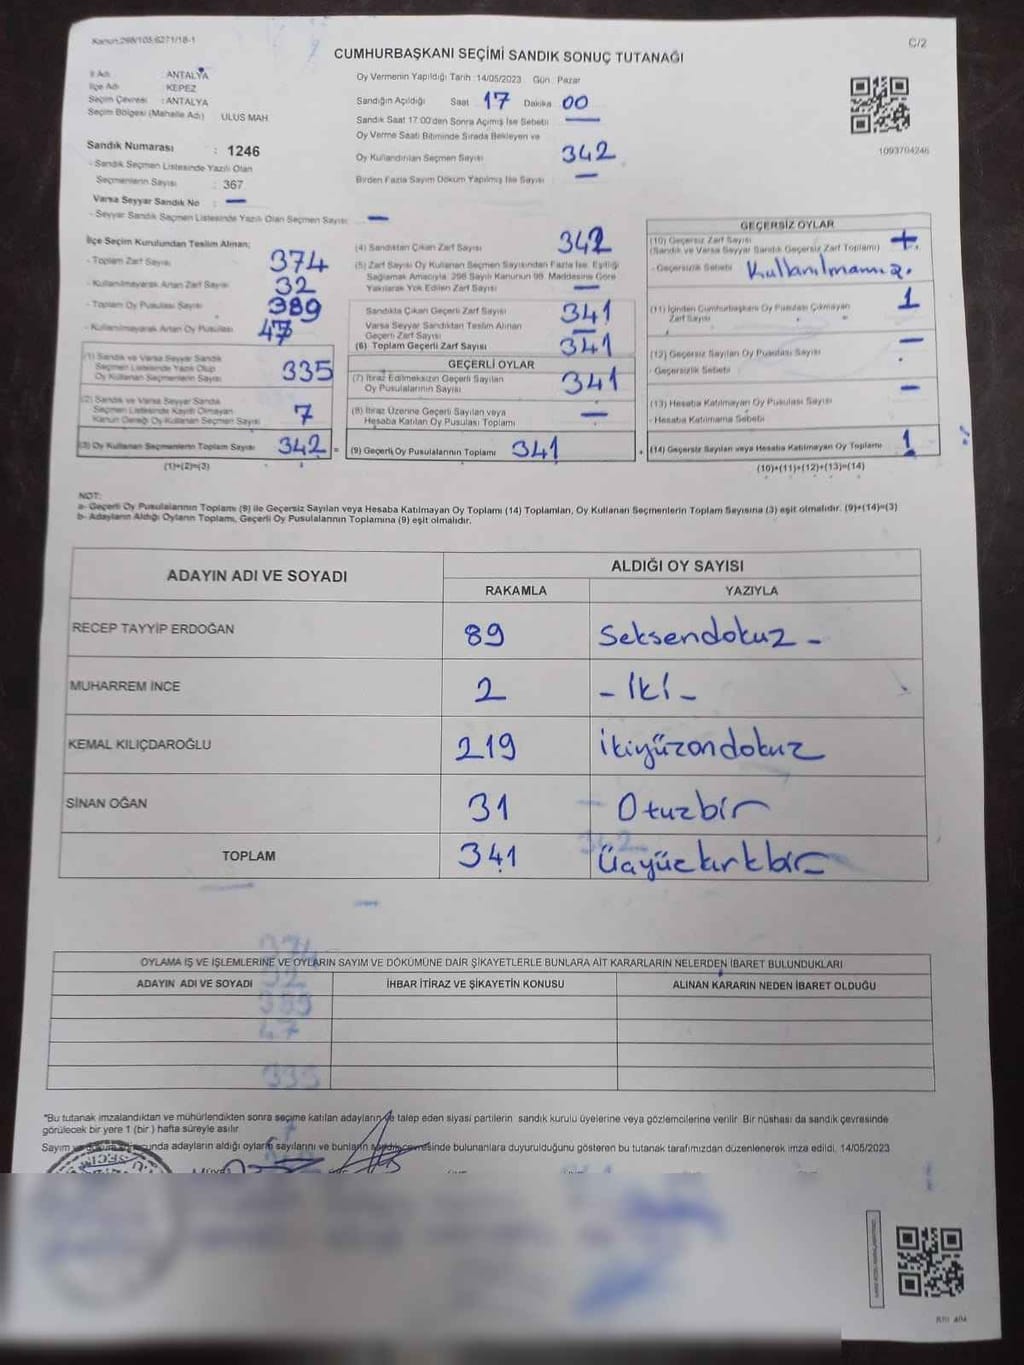 Kanun:298/105;6271/18-1
C/2
CUMHURBAŞKANI SEÇİMİ SANDIK SONUÇ TUTANAĞI
İl Adı : ANTALYA
İlçe Adı : KEPEZ
Seçim Çevresi : ANTALYA
Seçim Bölgesi (Mahalle Adı) ULUS MAH
Sandık Numarası : 1246
- Sandık Seçmen Listesinde Yazılı Olan
Seçmenlerin Sayısı : 367
Varsa Seyyar Sandık No : —
- Seyyar Sandık Seçmen Listesinde Yazılı Olan Seçmen Sayısı: —
Oy Vermenin Yapıldığı Tarih :14/05/2023 Gün : Pazar
Sandığın Açıldığı Saat 17 Dakika 00
Sandık Saat 17:00'den Sonra Açımış İse Sebebi —
Oy Verme Saati Bitiminde Sırada Bekleyen ve
Oy Kullandırılan Seçmen Sayısı 342
Birden Fazla Sayım Döküm Yapılmış İse Sayısı —
1093704246
İlçe Seçim Kurulundan Teslim Alınan;
- Toplam Zarf Sayısı 374
- Kullanılmayarak Artan Zarf Sayısı 32
- Toplam Oy Pusulası Sayısı 389
- Kullanılmayarak Artan Oy Pusulası 47
(1) Sandık ve Varsa Seyyar Sandık
Seçmen Listesinde Yazılı Olup
Oy Kullanan Seçmenlerin Sayısı 335
(2) Sandık ve Varsa Seyyar Sandık
Seçmen Listesinde Kayıtlı Olmayan
Kanun Gereği Oy Kullanan Seçmen Sayısı 7
(3) Oy Kullanan Seçmenlerin Toplam Sayısı 342 =
(1)+(2)=(3)
(4) Sandıktan Çıkan Zarf Sayısı 342
(5) Zarf Sayısı Oy Kullanan Seçmen Sayısından Fazla İse, Eşitliği
Sağlamak Amacıyla, 298 Sayılı Kanunun 98. Maddesine Göre
Yakılarak Yok Edilen Zarf Sayısı —
Sandıkta Çıkan Geçerli Zarf Sayısı 341
Varsa Seyyar Sandıktan Teslim Alınan
Geçerli Zarf Sayısı —
(6) Toplam Geçerli Zarf Sayısı 341
GEÇERLİ OYLAR
(7) İtiraz Edilmeksizin Geçerli Sayılan
Oy Pusulalarının Sayısı 341
(8) İtiraz Üzerine Geçerli Sayılan veya
Hesaba Katılan Oy Pusulası Toplamı —
(9) Geçerli Oy Pusulalarının Toplamı 341 +
GEÇERSİZ OYLAR
(10) Geçersiz Zarf Sayısı
(Sandık ve Varsa Seyyar Sandık Geçersiz Zarf Toplamı)
- Geçersizlik Sebebi
(11) İçinden Cumhurbaşkanı Oy Pusulası Çıkmayan
Zarf Sayısı 1
(12) Geçersiz Sayılan Oy Pusulası Sayısı —
- Geçersizlik Sebebi
(13) Hesaba Katılmayan Oy Pusulası Sayısı —
- Hesaba Katılmama Sebebi
(14) Geçersiz Sayılan veya Hesaba Katılmayan Oy Toplamı 1
(10)+(11)+(12)+(13)=(14)
NOT:
a- Geçerli Oy Pusulalarının Toplamı (9) ile Geçersiz Sayılan veya Hesaba Katılmayan Oy Toplamı (14) Toplamları, Oy Kullanan Seçmenlerin Toplam Sayısına (3) eşit olmalıdır. (9)+(14)=(3)
b- Adayların Aldığı Oyların Toplamı, Geçerli Oy Pusulalarının Toplamına (9) eşit olmalıdır.
ADAYIN ADI VE SOYADI
ALDIĞI OY SAYISI
RAKAMLA YAZIYLA
RECEP TAYYİP ERDOĞAN 89 Seksendokuz -
MUHARREM İNCE 2 - İki -
KEMAL KILIÇDAROĞLU 219 ikiyüzondokuz
SİNAN OĞAN 31 Otuzbir
TOPLAM 341 Üçyüzkırkbir
OYLAMA İŞ VE İŞLEMLERİNE VE OYLARIN SAYIM VE DÖKÜMÜNE DAİR ŞİKAYETLERLE BUNLARA AİT KARARLARIN NELERDEN İBARET BULUNDUKLARI
ADAYIN ADI VE SOYADI İHBAR İTİRAZ VE ŞİKAYETİN KONUSU ALINAN KARARIN NEDEN İBARET OLDUĞU
*Bu tutanak imzalandıktan ve mühürlendikten sonra seçime katılan adayların ve talep eden siyasi partilerin sandık kurulu üyelerine veya gözlemcilerine verilir. Bir nüshası da sandık çevresinde
görülecek bir yere 1 (bir) hafta süreyle asılır.
adayların aldığı oyların sayılarını ve bunların sandık çevresinde bulunanlara duyurulduğunu gösteren bu tutanak tarafımızdan düzenlenerek imza edildi. 14/05/2023